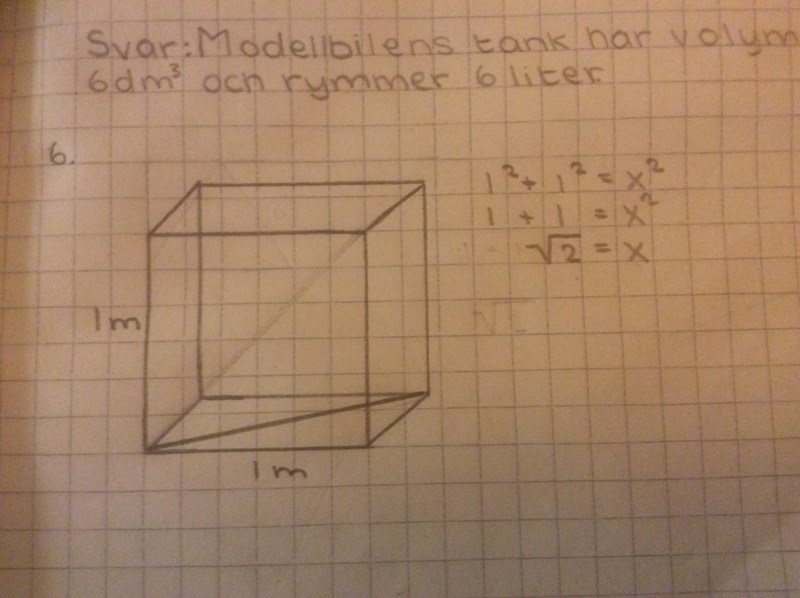 Svar: Modellbilens tank har volym
6dm³ och rymmer 6 liter
6.
1² + 1² = x²
1 + 1 = x²
√2 = x
1m
1m